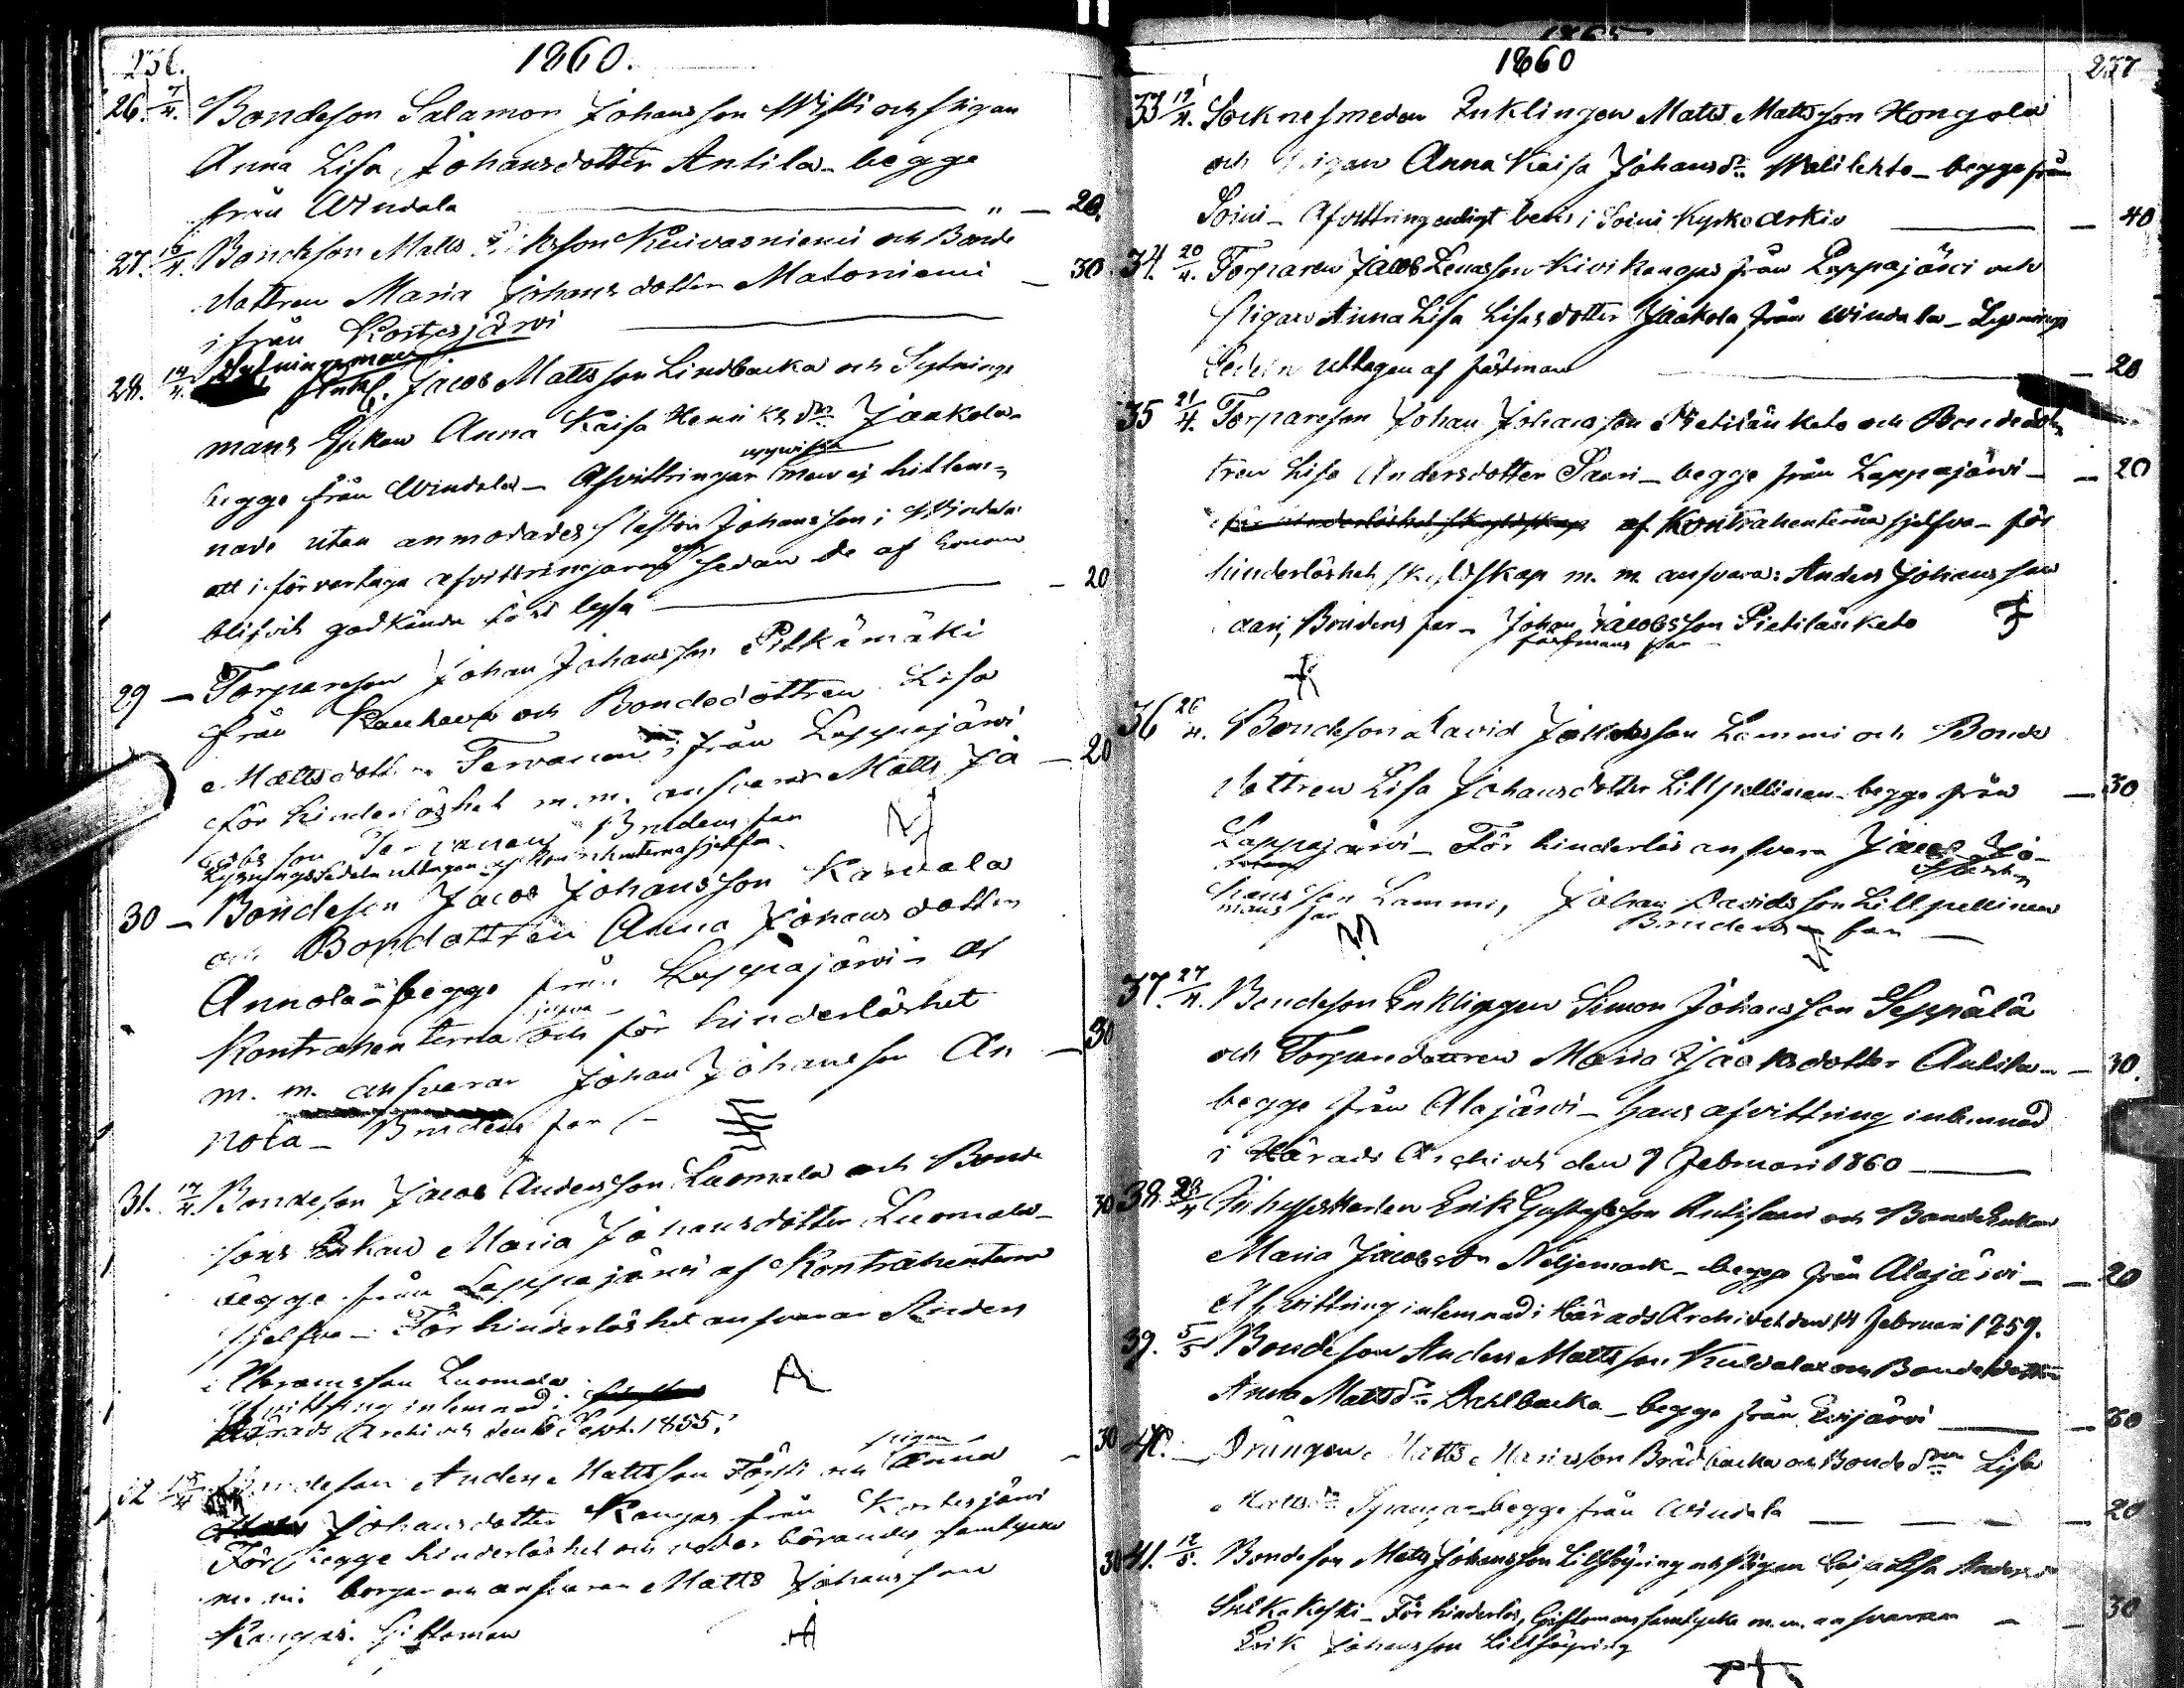 256.
1860.
26. 7/4. Bondeson Salamon Johansson Wisti och pigan
Anna Lisa Johansdotter Antila - begge
från Windala " - 20.
27. 13/4. Bondeson Matts Eriksson Keivasniemi och Bonde
dottren Maria Johansdotter Matoniemi - 30
ifrån Kortesjärvi
Sytningsman
28. 14/4. Enkl. Jacob Mattsson Lindbacka och Sytnings
mans Enkan Anna Kaisa Henriksdr Jaakola
uppvista
begge från Windala - Afvittringar men ej inlem=
nade utan anmodades Johansson i Windala
att i förvar taga afvittringarne och sedan de af honom
blifvit godkända först lysa - 20
29 - Torpareson Johan Johansson Pitkämäki
från Kauhava och Bondedottren Lisa
Mattsdotter Tervanen ifrån Lappajärvi - 20
för hinderlöshet m.m. ansvarar Matts Ja
cobsson Tervanen Brudens far
Lysningssedeln uttagen af Kontrahenterna sjelfva.
30 - Bondeson Jacob Johansson Karvala
och Bondottren Anna Johansdotter
Annola - begge från Lappajärvi - af
Kontrahenterna sjelfva - och för hinderlöshet - 30
m. m. ansvarar Johan Johansson An
nola - Brudens far -
31. 17/4. Bondeson Jacob Andersson Luomala och Bonde
sons Enkan Maria Johansdotter Luomala - 30
begge från Lappajärvi af Kontrahenterna
sjelfva - För hinderlöshet ansvarar Anders
Abramsson Luomala
Afvittring inlemnad i
Härads Archivet den 6 Sept. 1855.
pigan
32 18/4 Bondeson Anders Mattsson Försti och Anna - 30
Johansdotter Kangas från Kortesjärvi
För begge hinderlöshet och vederbörandes samtycke
m.m. borgar och ansvarar Matts Johansson
Kangas. Giftoman
1865
1860
257
33 19/4. Socknesmeden Enklingen Matts Mattsson Hongola
och pigan Anna Kaisa Johansdr Walilehto - begge från
Soini - Afvittring enligt bevis i Soini Kyrko arkiv - 40
34. 20/4. Torparen Jacob Lenasson Kivikangas från Lappajärvi och
pigan Anna Lisa Lisasdotter Jaakola från Windala - Lysnings
Sedeln uttagen af fästman - 20
35 21/4. Torpareson Johan Johansson Pietilänketo och Bondedot
tren Lisa Andersdotter Saari - begge från Lappajärvi - 20
för hinderlöshet, skyldskap af Kontrahenterna sjelfva - för
hinderlöshet skyldskap m. m. ansvara: Anders Johansson
Saari, Brudens far - Johan Jacobsson Pietilänketo
fästmans far
36 26/4. Bondeson David Jacobsson Lammi och Bonde
dottren Lisa Johansdotter Lillpellinen - begge från - 30
Lappajärvi - För hinderlös ansvara Jacob Jo-
hansson Lammi, fästmans far
Johan Davidsson Lillpellinen
Brudens far
37. 27/4. Bondeson Enklingen Simon Johansson Seppälä
och Torparedottren Maria Jaaksdotter Antila - 30.
begge från Alajärvi - Hans afvittring inlemnad
i Härads Archivet den 9 Februari 1860
38. 28/4 Inhysskarlen Erik Gustafsson och Bonde Enkan
Maria Jacobsdr Neljemark - begge från Alajärvi - 20
Afvittring inlemnad i Härads Archivet den 14 Februari 1859.
39. 5/5 Bondeson Anders Mattsson Kuldala och Bondedottren
Anna Mattsdr Dahlbacka - begge från Evijärvi - 30
40. - Drängen Matts Mariasson Brådbacka och Bondedrn Lisa
Mattsdr Spangar - begge från Windala - 20
41. 12/5. Bondeson Matts Johansson Lillsöyring och pigan Caisa Lisa Andersdr
Sulkakoski - För hinderlös, Giftomans samtycke m.m. ansvarar - 30
Erik Johansson Lillsöyring